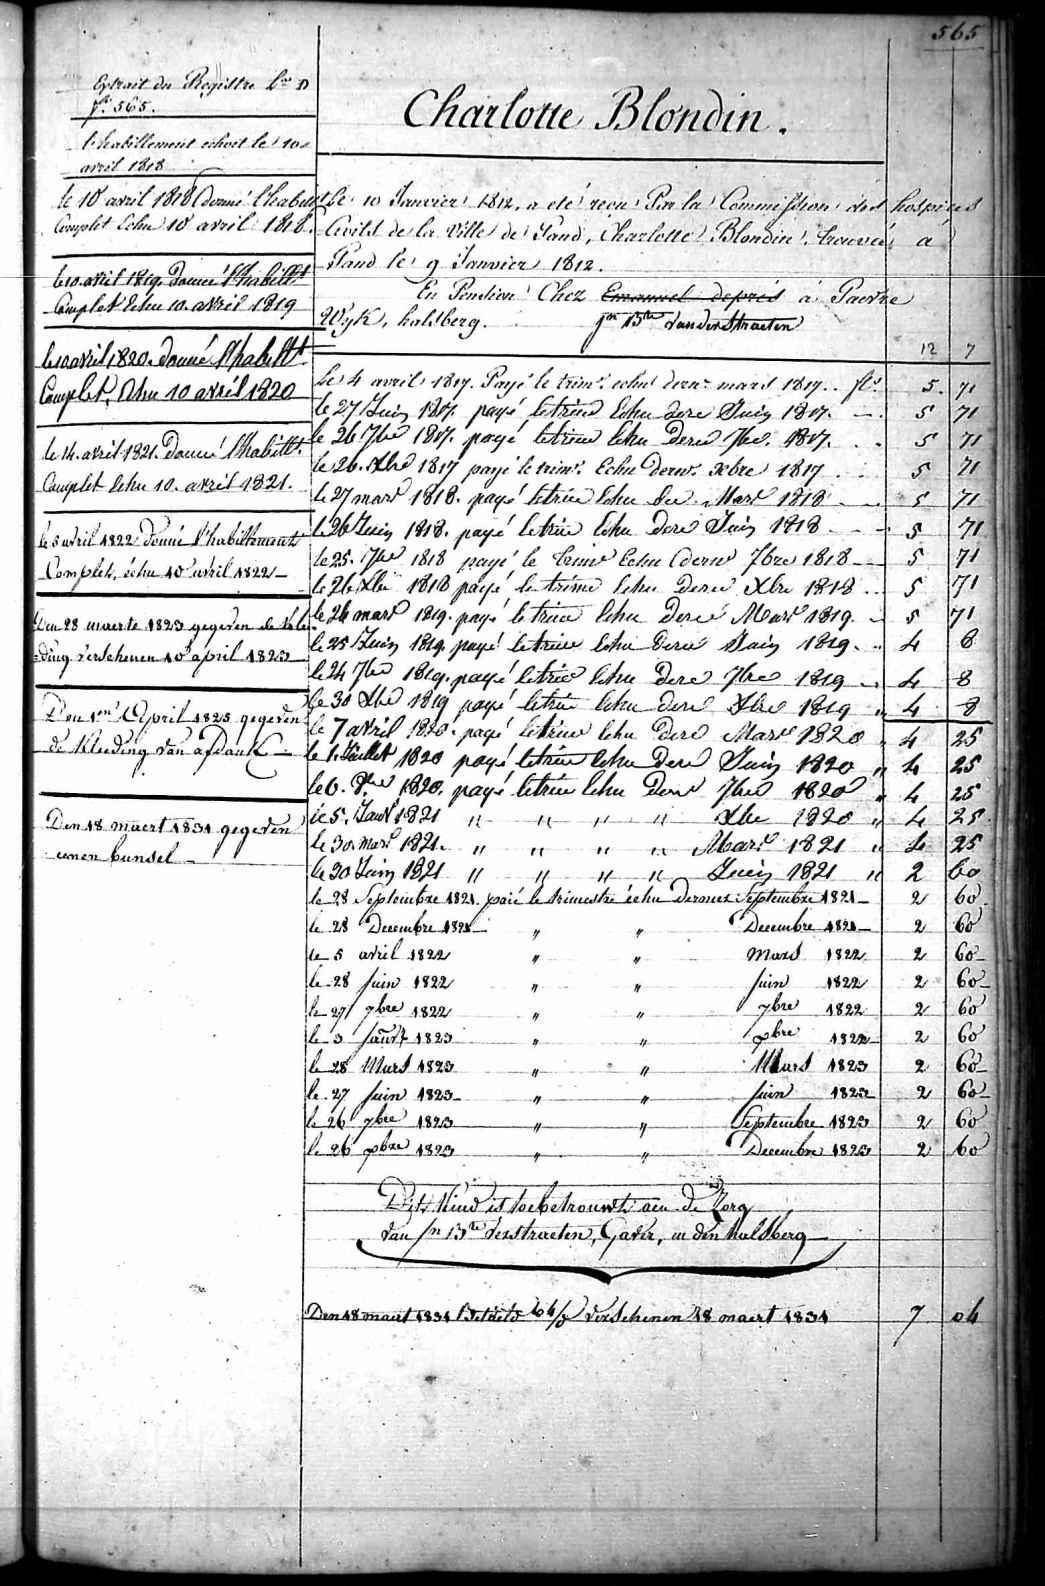 565
Extrait du Registre
f° 565.
l'habillement echoit le 10
avril 1818
le 10 avril 1818 donné l'habillt
Complet Echu 10 avril 1818.
le 10 avril 1819. Donné l'habillt
Complet Echu 10. avril 1819
le 10 avril 1820. donné l'habillt
Complet, Echu 10 avril 1820
le 14. avril 1821. Donné l'habillt.
Complet Echu 10. avril 1821.
le 5 avril 1822 donné l'habillement
Complet, échu 10 avril 1822
Den 28 maerte 1823 gegeven de klee-
ding verschenen 10 april 1823
Den 1en April 1825 gegeven
de kleeding van afdank
Den 18 maert 1831 gegeven
eenen bunsel
Charlotte Blondin.
Le 10 Janvier 1812, a eté reçu Par la Commission des hospices
Civils de la Ville de Gand, Charlotte Blondin, trouvée à
Gand le 9 Janvier 1812.
En Pension Chez Emanuel depres à Gavre
Wyk, halsberg. jn Bte vanderstraeten
12 7
le 4 avril 1817. Payé le trimr. echu dernr mars 1817. fls. 5. 71
le 27 Juin 1817. payé letrim Echu dere Juin 1817. 5 71
le 26 7bre 1817. payé letrim Echu dere 7bre. 1817. 5 71
le 26. Xbre 1817 payé le trimr. Echu dernr. xbre 1817 5 71
le 27 mars 1818. payé letrim Echu Mars 1818 5 71
le 26 Juin 1818. payé letrim Echu dere Juin 1818 5 71
le 25. 7bre 1818 payé le trimr Echu dernr 7bre 1818 5 71
le 26 Xbre 1818 payé letrim Echu dere Xbre 1818 5 71
le 26 mars 1819. payé letrim Echu dere Mars 1819. 5 71
le 25 Juin 1819. payé letrim Echu dere Juin 1819. 4 8
le 24 7bre 1819. payé letrim Echu dere 7bre 1819 4 8
le 30 Xbre 1819 payé letrim Echu dere Xbre 1819 " 4 8
le 7 avril 1820. payé letrim Echu dere Mars 1820 " 4 25
le 1. Juillet 1820 payé letrim Echu dere Juin 1820 " 4 25
le 6. 8bre 1820. payé letrim Echu dere 7bre 1820 " 4 25
le 5. Janr 1821 " " " " Xbre 1820 " 4 25
le 30. mars 1821. " " " " Mars 1821 " 4 25
le 30 Juin 1821 " " " " Juin 1821 " 2 60
le 28 Septembre 1821. paié le trimestre échu Dernier Septembre 1821 2 60
le 28 Decembre 1821 " " Decembre 1821 2 60
le 5 avril 1822 " " mars 1822 2 60
le 28 juin 1822 " " juin 1822 2 60
le 27 7bre 1822 " " 7bre 1822 2 60
le 3 janvr 1823 " " xbre 1822 2 60
le 28 Mars 1823 " " Mars 1823 2 60
le 27 juin 1823 " " juin 1823 2 60
le 26 7bre 1823 " " Septembre 1823 2 60
le 26 xbre 1823 " " Decembre 1823 2 60
Dit kind is toebetrouwt aen de Zorg
van jn Bte Verstraeten, Gaver, in den halsberg
Den 18 maert 1831 Betaeld verschenen 18 maert 1831 7 04